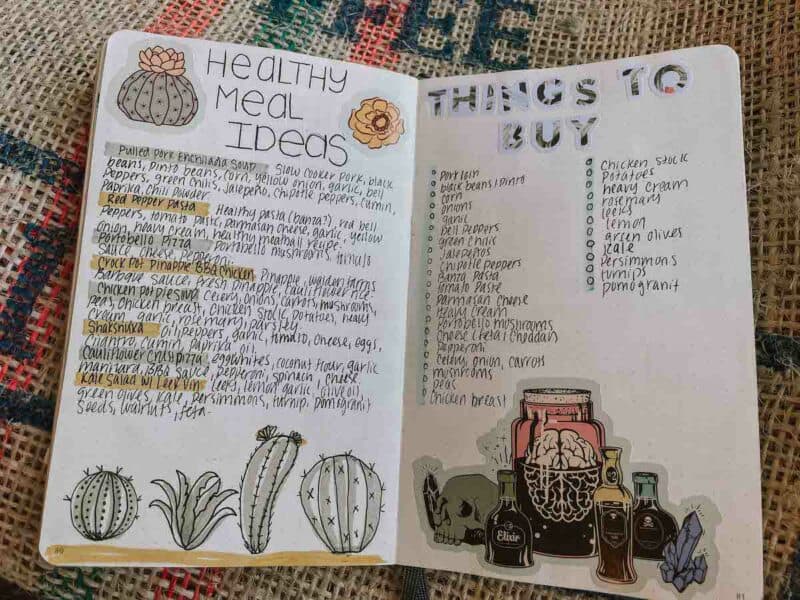 HEALTHY
MEAL
IDEAS
Pulled Pork Enchilada Soup Slow cooker pork, black
beans, pinto beans, corn, yellow onion, garlic, bell
peppers, green chilis, jalapeño, chipotle peppers, cumin,
paprika, chili powder
Red Pepper Pasta Healthy pasta (banza?), red bell
peppers, tomato paste, parmasan cheese, garlic, yellow
onion, heavy cream, healthy meatball recipe.
Portobello Pizza Portobello mushrooms,
sauce, cheese, pepperoni
Crock Pot Pineapple BBQ Chicken Pineapple, walden farms
barbaque sauce, fresh pineapple, cauliflower rice
Chicken Potpie Soup Celery, onions, carrots, mushrooms,
peas, chicken breast, chicken stock, potatoes, heavy
cream garlic, rosemary, parsley
Shakshuka oil, peppers, garlic, tomato, cheese, eggs,
cilantro, cumin, paprika, oil
Cauliflower Crust Pizza eggwhites, coconut flour, garlic
marinara, BBQ sauce, pepperoni, spinach, cheese
Kale Salad w/ Leek Vin Leeks, lemon garlic, olive oil,
green olives, kale, persimmons, turnip, pomogranit
seeds, walnuts, feta.
THINGS TO
BUY
pork loin
black beans/pinto
corn
onions
garlic
bell peppers
green chilis
jalapeños
chipotle peppers
Banza pasta
tomato paste
parmasan cheese
heavy cream
portobello mushrooms
cheese (feta/cheddar)
pepperoni
celery, onion, carrots
mushrooms
peas
chicken breast
chicken stock
potatoes
heavy cream
rosemary
leeks
lemon
green olives
kale
persimmons
turnips
pomogranit
Elixir